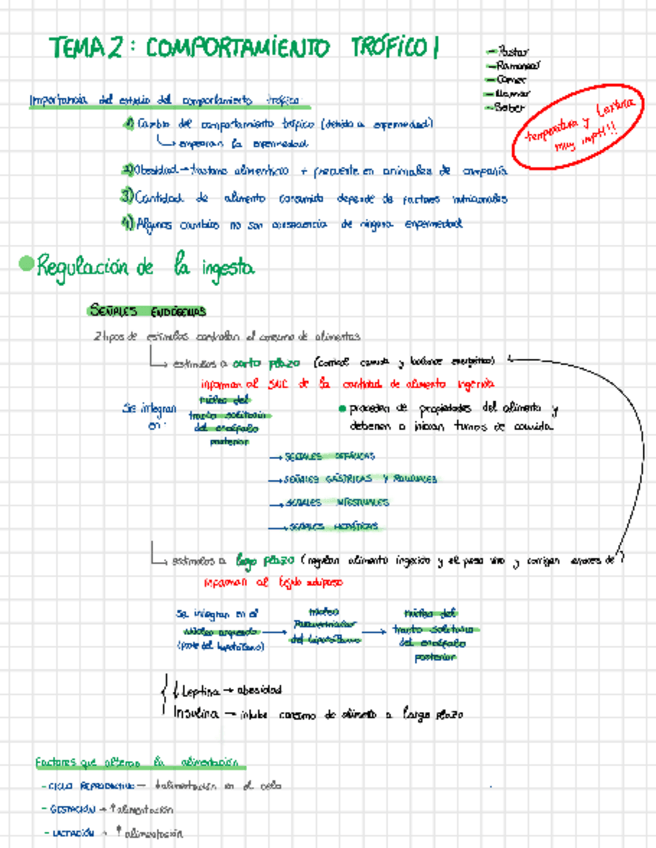 TEMA 2: COMPORTAMIENTO TRÓFICO 1
- Pastar
- Ramonear
- Comer
- Mamar
- Beber
Importancia del estudio del comportamiento trófico
temperatura y textura
muy impt!!!
1) Cambio del comportamiento trófico (debido a enfermedad)
empeoran la enfermedad
2) Obesidad → trastorno alimenticio + frecuente en animales de compañía
3) Cantidad de alimento consumido depende de factores nutricionales
4) Algunos cambios no son consecuencia de ninguna enfermedad
Regulación de la ingesta
SEÑALES ENDÓGENAS
2 tipos de estímulos controlan el consumo de alimentos
→ estímulos a corto plazo (control comida y balance energético)
informan al SNC de la cantidad de alimento ingerida
Se integran en:
núcleo del
tracto solitario
del encéfalo
posterior
• proceden de propiedades del alimento y
detienen o inician turnos de comida
→ SEÑALES
→ SEÑALES GÁSTRICAS Y
→ SEÑALES INTESTINALES
→ SEÑALES HEPÁTICAS
→ estímulos a largo plazo (regulan alimento ingerido y el peso vivo y corrigen errores de)
informan al tejido adiposo
Se integran en el
núcleo arqueado
(parte del hipotálamo)
→ núcleo
Paraventricular
del hipotálamo
→ núcleo del
tracto solitario
del encéfalo
posterior
↓ Leptina → obesidad
Insulina → inhibe consumo de alimento a largo plazo
Factores que alteran la alimentación
- CICLO REPRODUCTIVO → alimentación en el celo
- GESTACIÓN → ↑ alimentación
- LACTACIÓN → ↑ alimentación